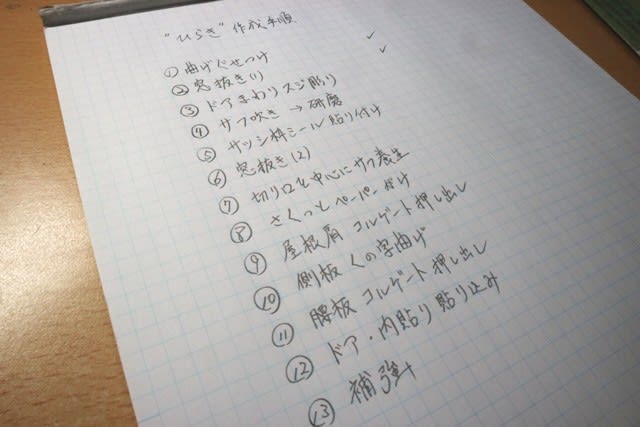 "ひらき" 作成手順
① 曲げぐせつけ ✓
② 窓抜き(1) ✓
③ ドアまわりスジ彫り
④ サフ吹き → 研磨
⑤ サッシ枠シール貼り付け
⑥ 窓抜き(2)
⑦ 切り口を中心にサフ養生
⑧ さくっとペーパーがけ
⑨ 屋根肩 コルゲート押し出し
⑩ 側板 くの字曲げ
⑪ 腰板 コルゲート押し出し
⑫ ドア・内貼り貼り込み
⑬ 補強